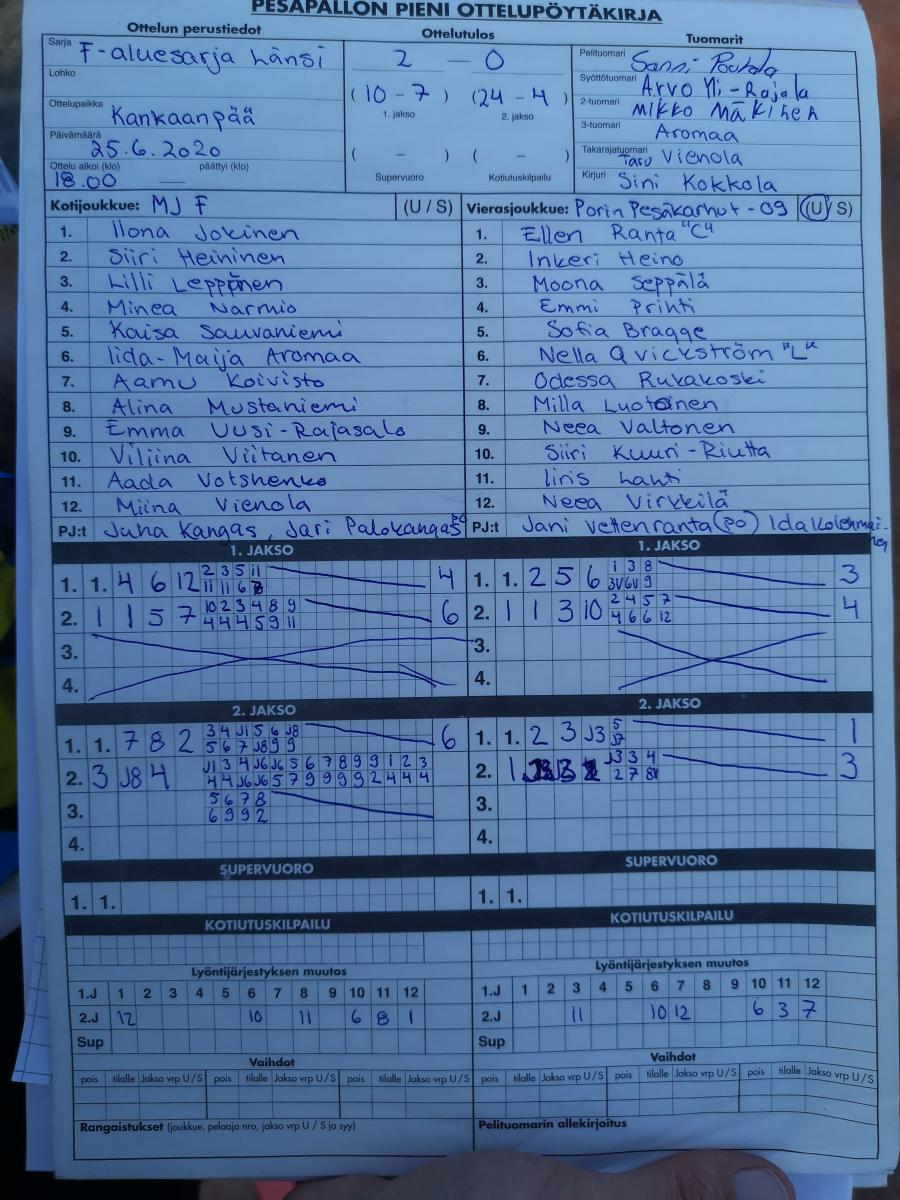 PESÄPALLON PIENI OTTELUPÖYTÄKIRJA
Ottelun perustiedot
Sarja F-aluesarja Länsi
Lohko
Ottelupaikka Kankaanpää
Päivämäärä 25.6.2020
Ottelu alkoi (klo) päättyi (klo)
18.00 —
Ottelutulos
2 — 0
( 10 - 7 ) (24 - 4 )
1. jakso 2. jakso
( - ) ( - )
Supervuoro Kotiutuskilpailu
Tuomarit
Pelituomari Sanni
Syöttötuomari Arvo Yli-Rajala
2-tuomari Mikko Mäkinen
3-tuomari Aromaa
Takarajatuomari Taru Vienola
Kirjuri Sini Kokkola
Kotijoukkue: MJ F (U / S)
1. Ilona Jokinen
2. Siiri Heininen
3. Lilli Leppänen
4. Minea Narmio
5. Kaisa Sauvaniemi
6. Iida-Maija Aromaa
7. Aamu Koivisto
8. Alina Mustaniemi
9. Emma Uusi-Rajasalo
10. Viliina Viitanen
11. Aada Votshenko
12. Miina Vienola
PJ:t Juha Kangas, Jari Palokangas
Vierasjoukkue: Porin Pesäkarhut -09 (U/ S)
1. Ellen Ranta "C"
2. Inkeri Heino
3. Moona Seppälä
4. Emmi Printi
5. Sofia Bragge
6. Nella Qvickström "L"
7. Odessa Rukakoski
8. Milla Luotonen
9. Neea Valtonen
10. Siiri Kuuri-Riutta
11. Iiris Lahti
12. Neea Virkkilä
PJ:t Jani Vettenranta (PO) Ida Kolehmainen
1. JAKSO
1. 1. 4 6 12 2 3 5 11 4
11 11 6 8
2. 1 1 5 7 10 2 3 4 8 9 6
4 4 4 5 9 11
3.
4.
1. JAKSO
1. 1. 2 5 6 1 3 8 3
3V 6V 9
2. 1 1 3 10 2 4 5 7 4
4 6 6 12
3.
4.
2. JAKSO
1. 1. 7 8 2 3 4 J1 5 6 J8 6
5 6 7 J8 9 9
2. 3 J8 4 J1 3 4 J6 J6 5 6 7 8 9 9 1 2 3
4 4 J6 J6 5 7 9 9 9 9 2 4 4 4
3. 5 6 7 8
6 9 9 2
4.
2. JAKSO
1. 1. 2 3 J3 5 1
J7
2. 1 J3 3 4 3
2 7 8V
3.
4.
SUPERVUORO
1. 1.
SUPERVUORO
1. 1.
KOTIUTUSKILPAILU
KOTIUTUSKILPAILU
Lyöntijärjestyksen muutos
1.J 1 2 3 4 5 6 7 8 9 10 11 12
2.J 12 10 11 6 8 1
Sup
Lyöntijärjestyksen muutos
1.J 1 2 3 4 5 6 7 8 9 10 11 12
2.J 11 10 12 6 3 7
Sup
Vaihdot
pois tilalle Jakso vrp U / S pois tilalle Jakso vrp U / S pois tilalle Jakso vrp U / S
Vaihdot
pois tilalle Jakso vrp U / S pois tilalle Jakso vrp U / S pois tilalle Jakso vrp U / S
Rangaistukset (joukkue, pelaaja nro, jakso vrp U / S ja syy)
Pelituomarin allekirjoitus